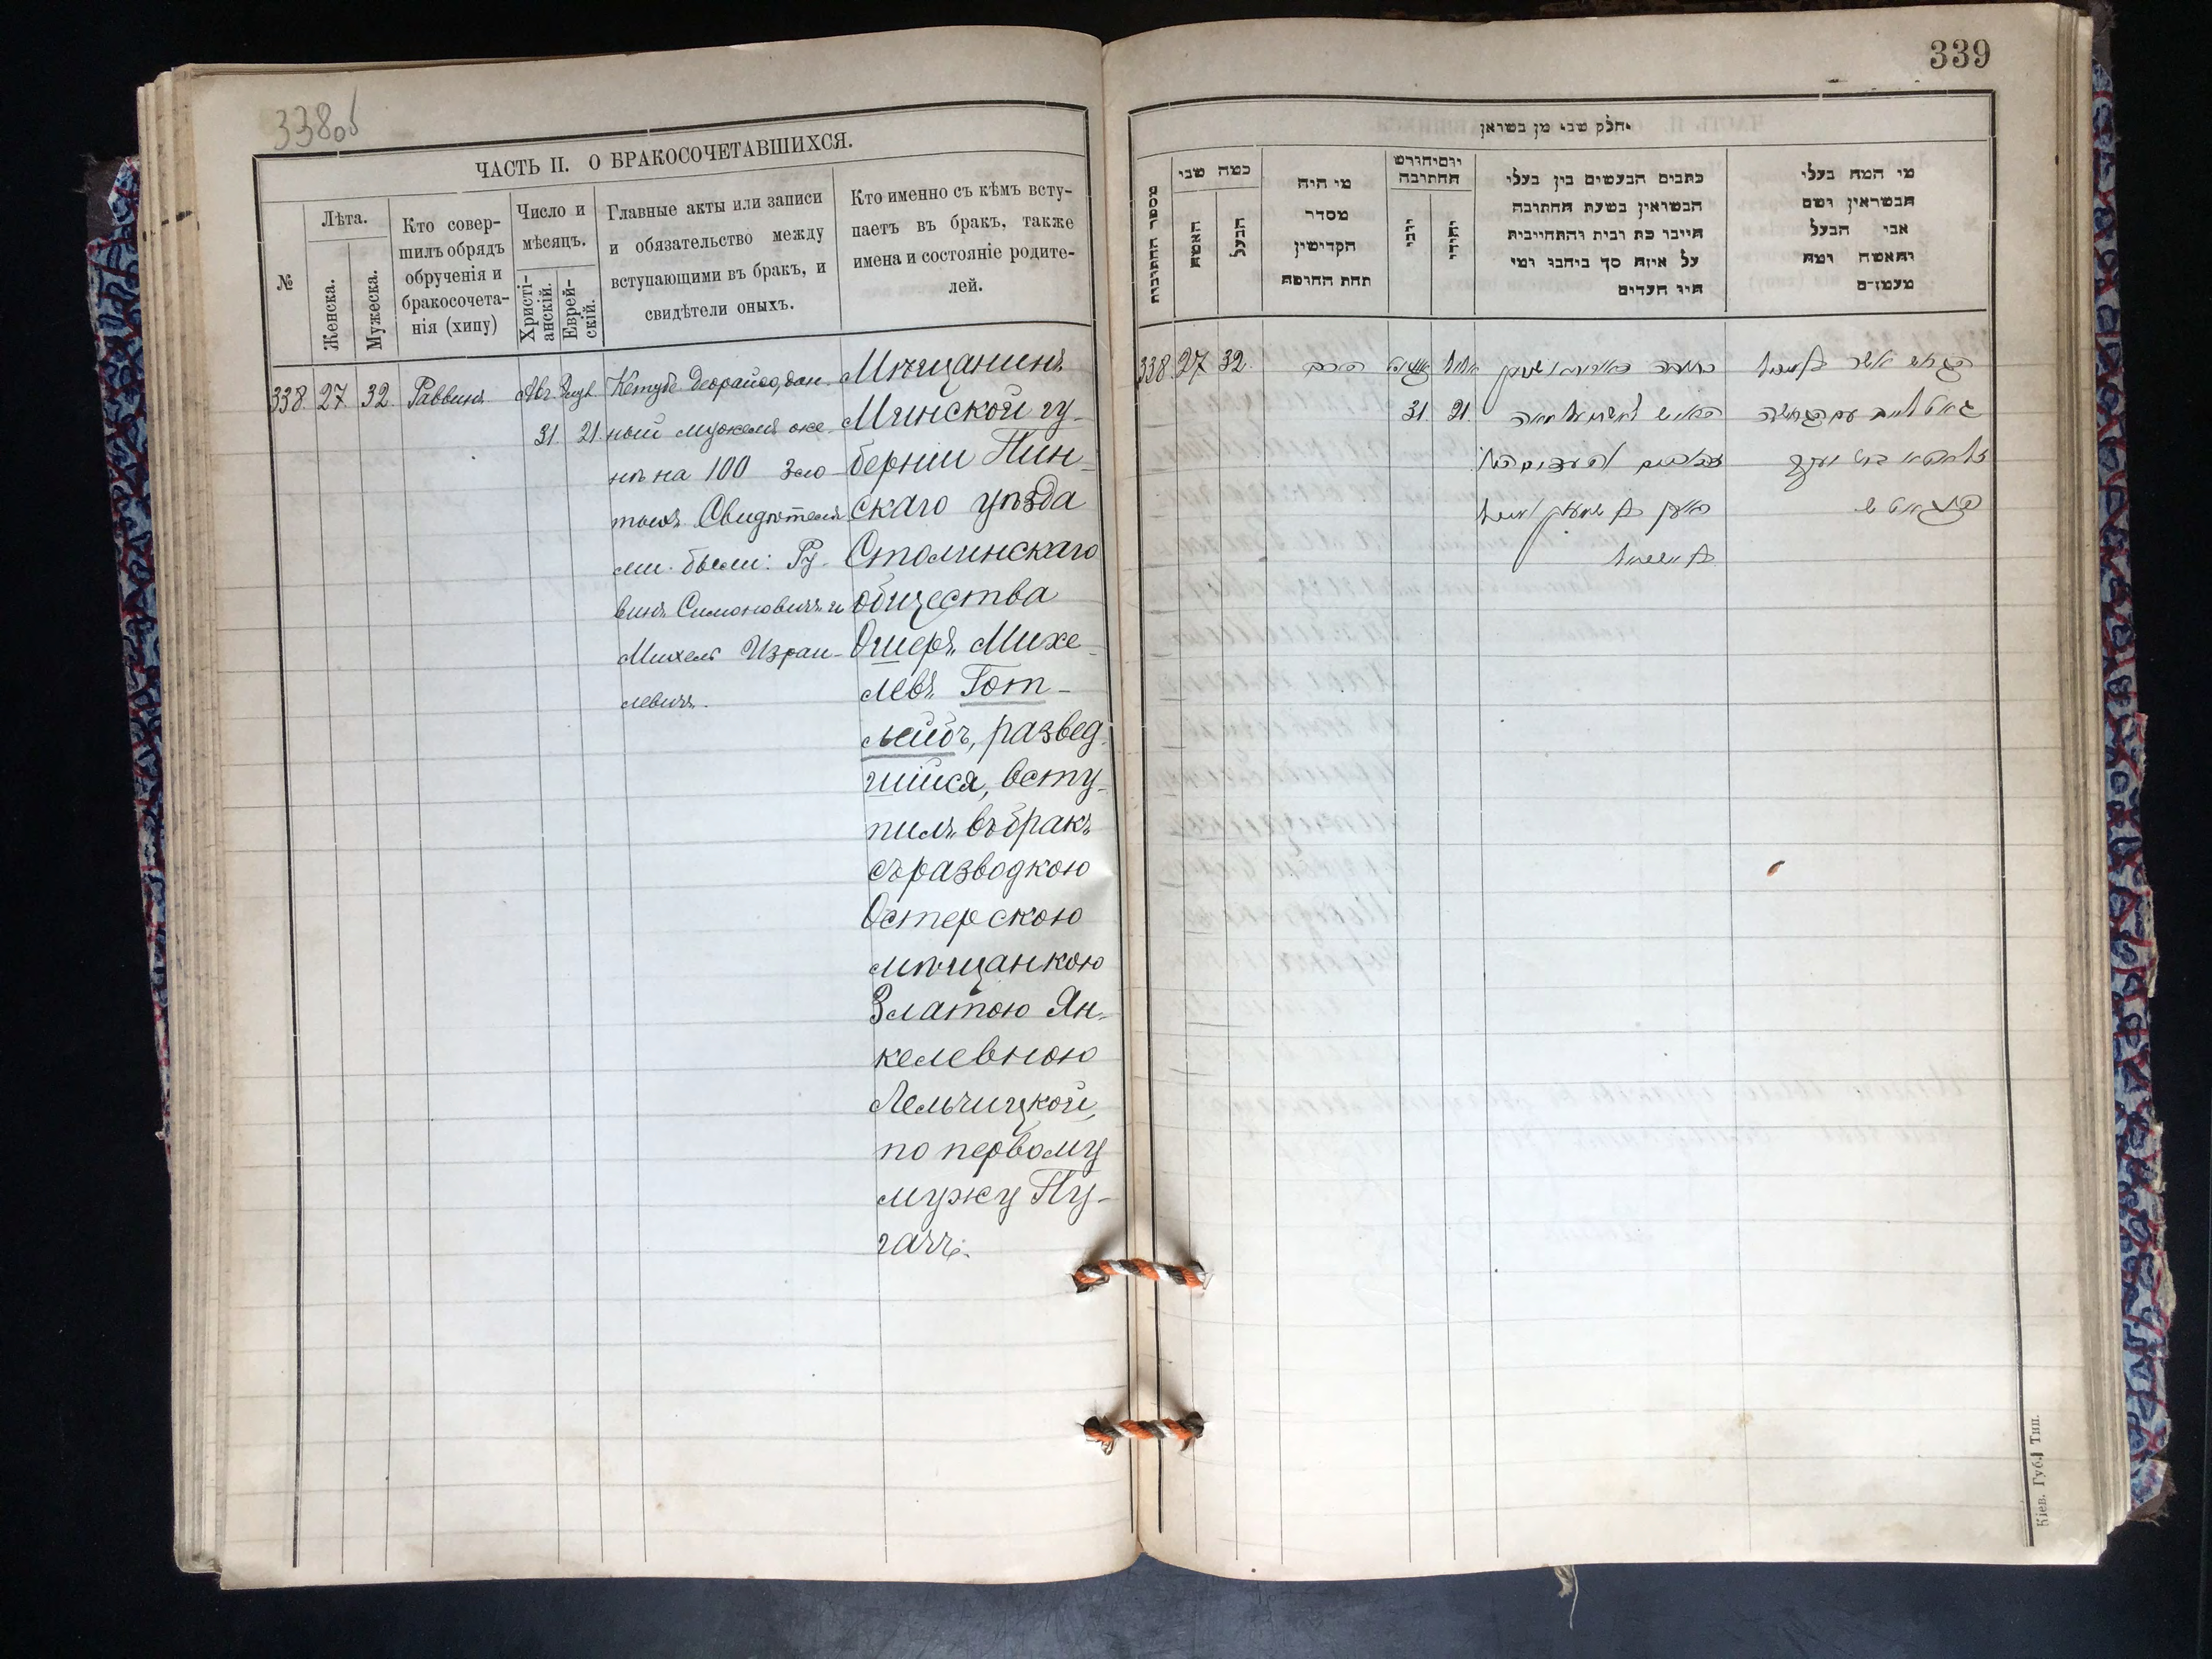 338об
ЧАСТЬ II. О БРАКОСОЧЕТАВШИХСЯ.
№
Лѣта.
Женска.
Мужеска.
Кто совер-
шилъ обрядъ
обрученія и
бракосочета-
нія (хипу)
Число и
мѣсяцъ.
Христі-
анскій.
Еврей-
скій.
Главные акты или записи
и обязательство между
вступающими въ бракъ, и
свидѣтели оныхъ.
Кто именно съ кѣмъ всту-
паетъ въ бракъ, также
имена и состояніе родите-
лей.
338. 27. 32. Раввинъ Авг. Элул
31. 21.
Кетубе деорайсо, дан-
ный мужемъ же-
нѣ на 100 зло-
тыхъ. Свидѣтеля-
ми были: Ру-
винъ Симоновичъ и
Михель Израи-
левичъ.
Мѣщанинъ
Минской гу-
берніи Пин-
скаго уѣзда
Столинскаго
общества
Ошеръ Михе-
левъ Гот-
лейбъ, развед-
шійся, всту-
пилъ въ бракъ
съ разводкою
Остерскою
мѣщанкою
Златою Ян-
келевною
Лельчицкой,
по первому
мужу Пу-
гачъ.
339
חלק שני מן
מספר החתונות
כמה שני
האשה
הבעל
מי היה
מסדר
הקדישין
תחת החופה
יום וחודש
החתונה
יוני
יהודי
כתבים הנעשים בין בעלי
הנשואין בשעת החתונה
היינו כתובות והתחייבות
על איזה סך ניתנו ומי
היו העדים
מי המה בעלי
הנשואין ושם
אבי הבעל
והאשה ומה
מעמדם
338. 27. 32. הרב אויגוסט אלול
31. 21.
הגרוש אשר
Кіев. Губ. Тип.